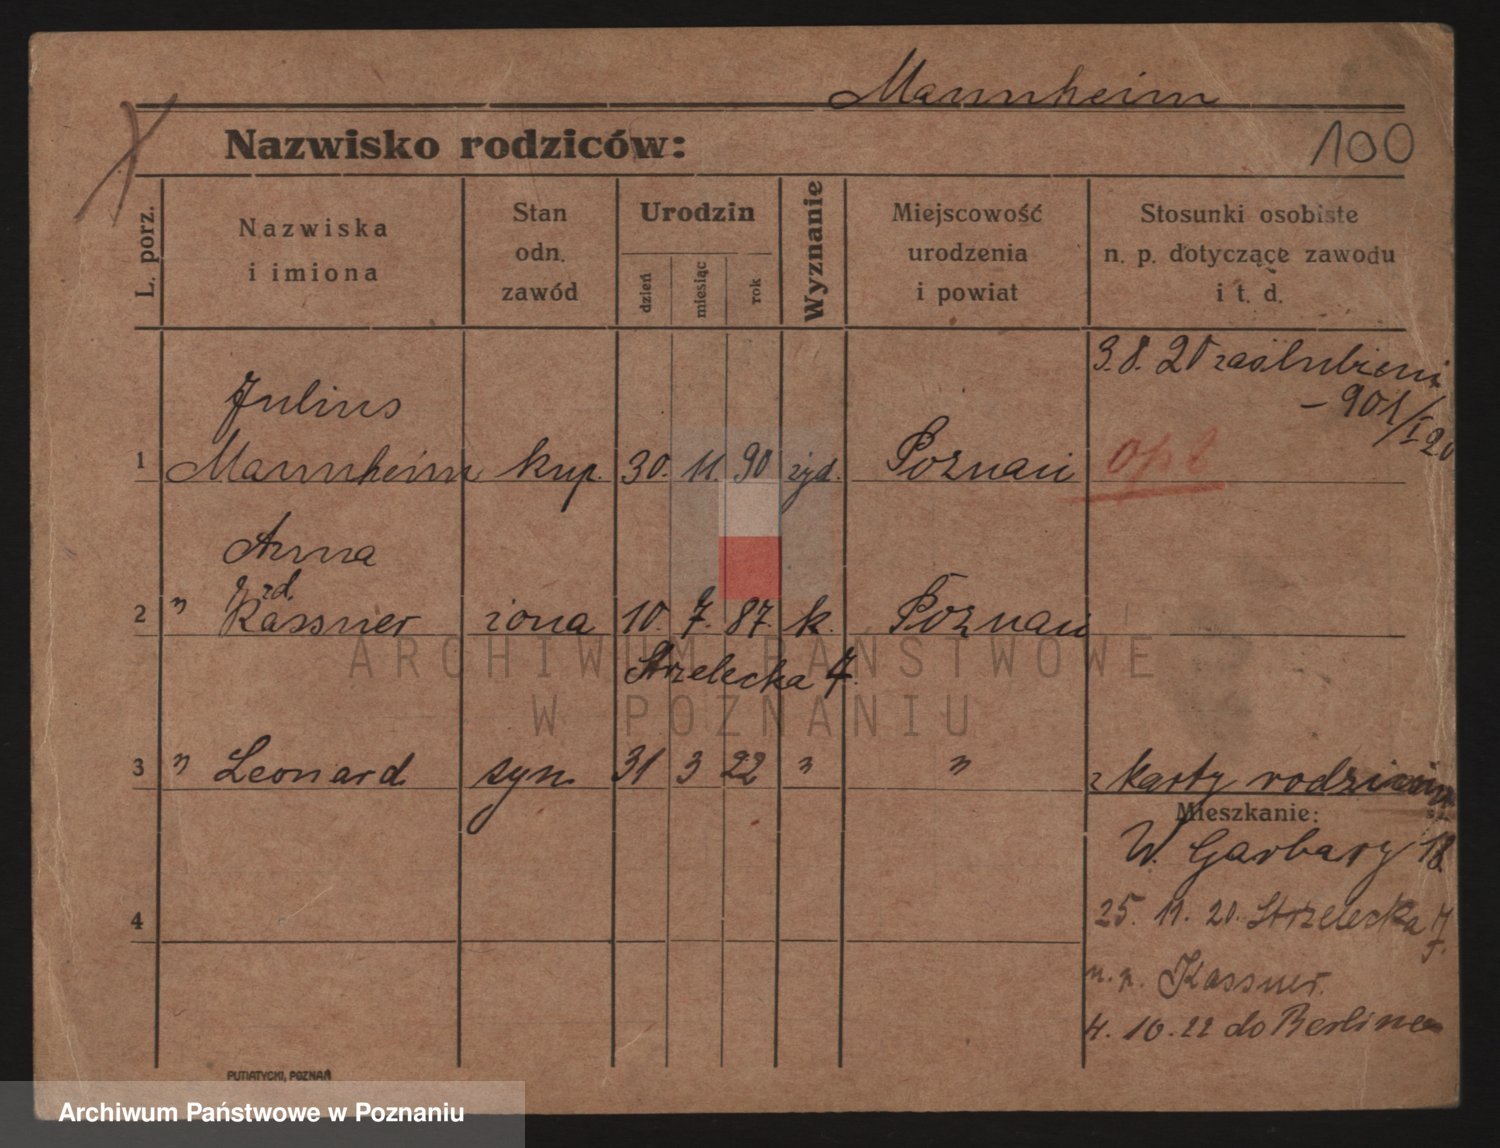 Mannheim
Nazwisko rodziców:
100
L. porz.
Nazwiska
i imiona
Stan
odn.
zawód
Urodzin
dzień
miesiąc
rok
Wyznanie
Miejscowość
urodzenia
i powiat
Stosunki osobiste
n. p. dotyczące zawodu
i t. d.
3.8. 20 zaślubieni
- 901/I 20
Julius
1 Mannheim kup. 30. 11. 90 żyd. Poznań opt
Anna
2 " Kassner żona 10. 7. 87. k. Poznań
Strzelecka 7.
3 " Leonard syn 31 3 22 " " z karty
Mieszkanie:
W. Garbary 18
4
25. 11. 20. Strzelecka 7
n. p. Kassner.
4. 10. 22 do Berlina
PUTIATYCKI, POZNAŃ
ARCHIWUM PAŃSTWOWE
W POZNANIU
Archiwum Państwowe w Poznaniu